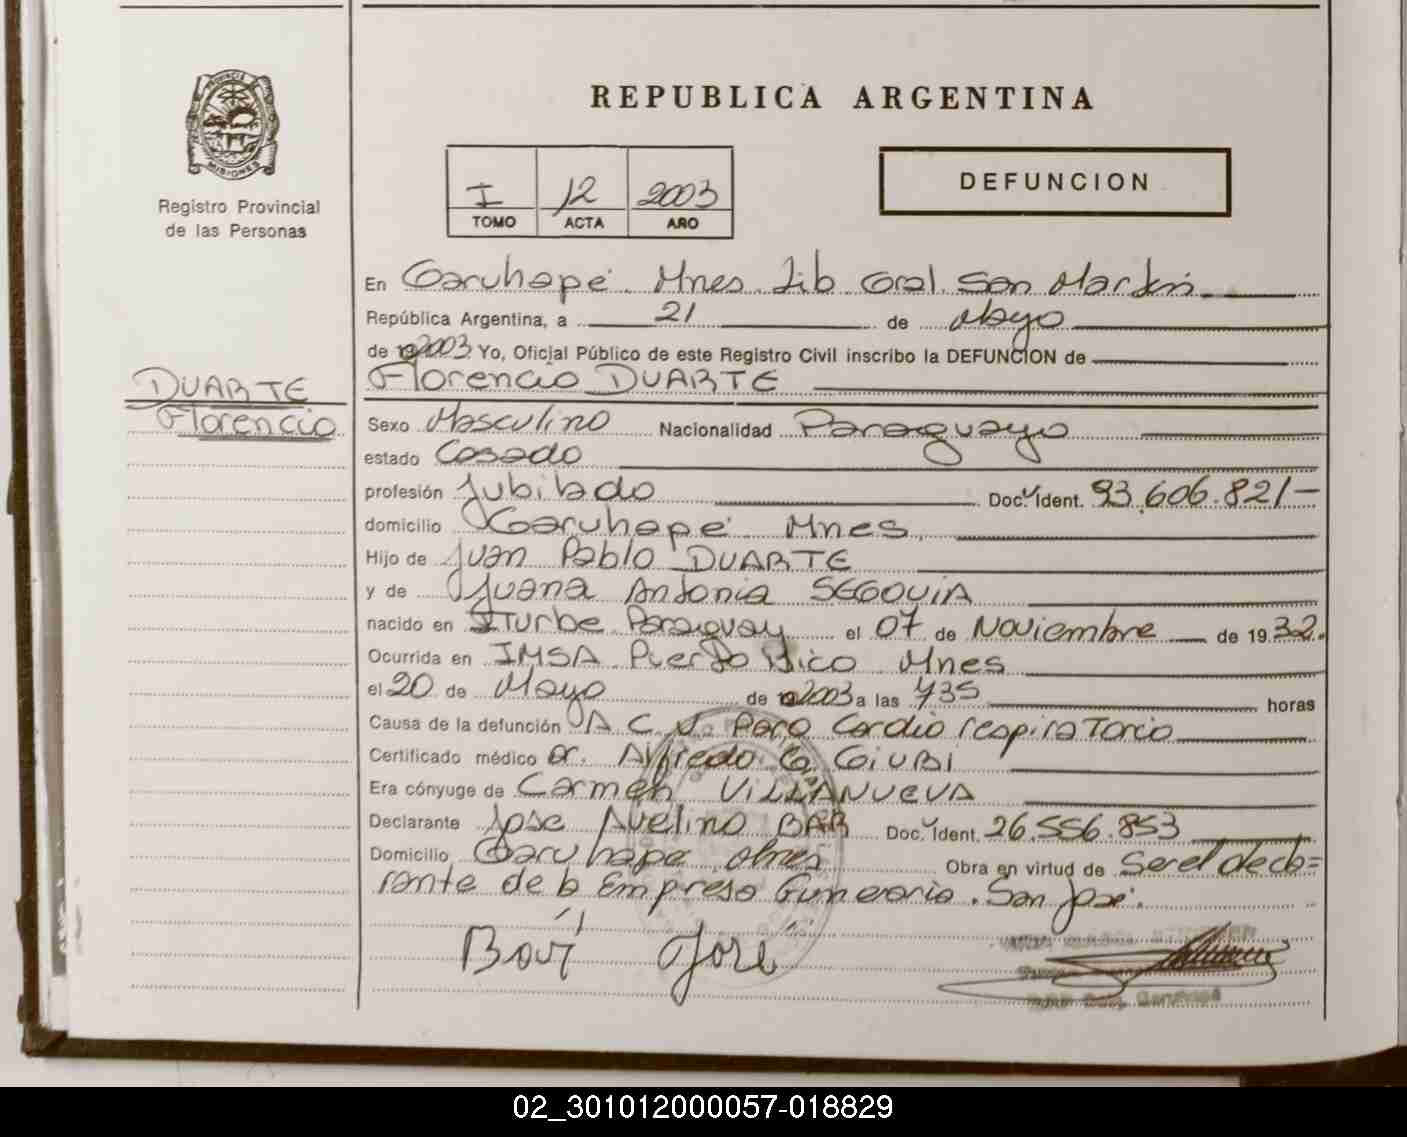 REPUBLICA ARGENTINA
PROVINCIA DE
MISIONES
Registro Provincial
de las Personas
I 12 2003
TOMO ACTA AÑO
DEFUNCION
En Garuhapé Mnes. Lib. Gral. San Martín
República Argentina, a 21 de Mayo
de 2003 Yo, Oficial Público de este Registro Civil inscribo la DEFUNCION de
Florencio DUARTE
DUARTE
Florencio
Sexo Masculino Nacionalidad Paraguayo
estado Casado
profesión Jubilado Doc. Ident. 93.606.821-
domicilio Garuhapé Mnes.
Hijo de Juan Pablo DUARTE
y de Juana Antonia SEGOVIA
nacido en ITurbe Paraguay el 07 de Noviembre de 1932.
Ocurrida en IMSA Puerto Rico Mnes
el 20 de Mayo de 2003 a las 735 horas
Causa de la defunción A C V. Paro Cardio respiraTorio
Certificado médico Dr. Alfredo G. GiUBI
Era cónyuge de Carmen VILLANUEVA
Declarante Jose Avelino Doc. Ident. 26.556.853
Domicilio Garuhape Mnes Obra en virtud de Ser el decla=
rante de la Empresa Funeraria. San José.
José
02_301012000057-018829